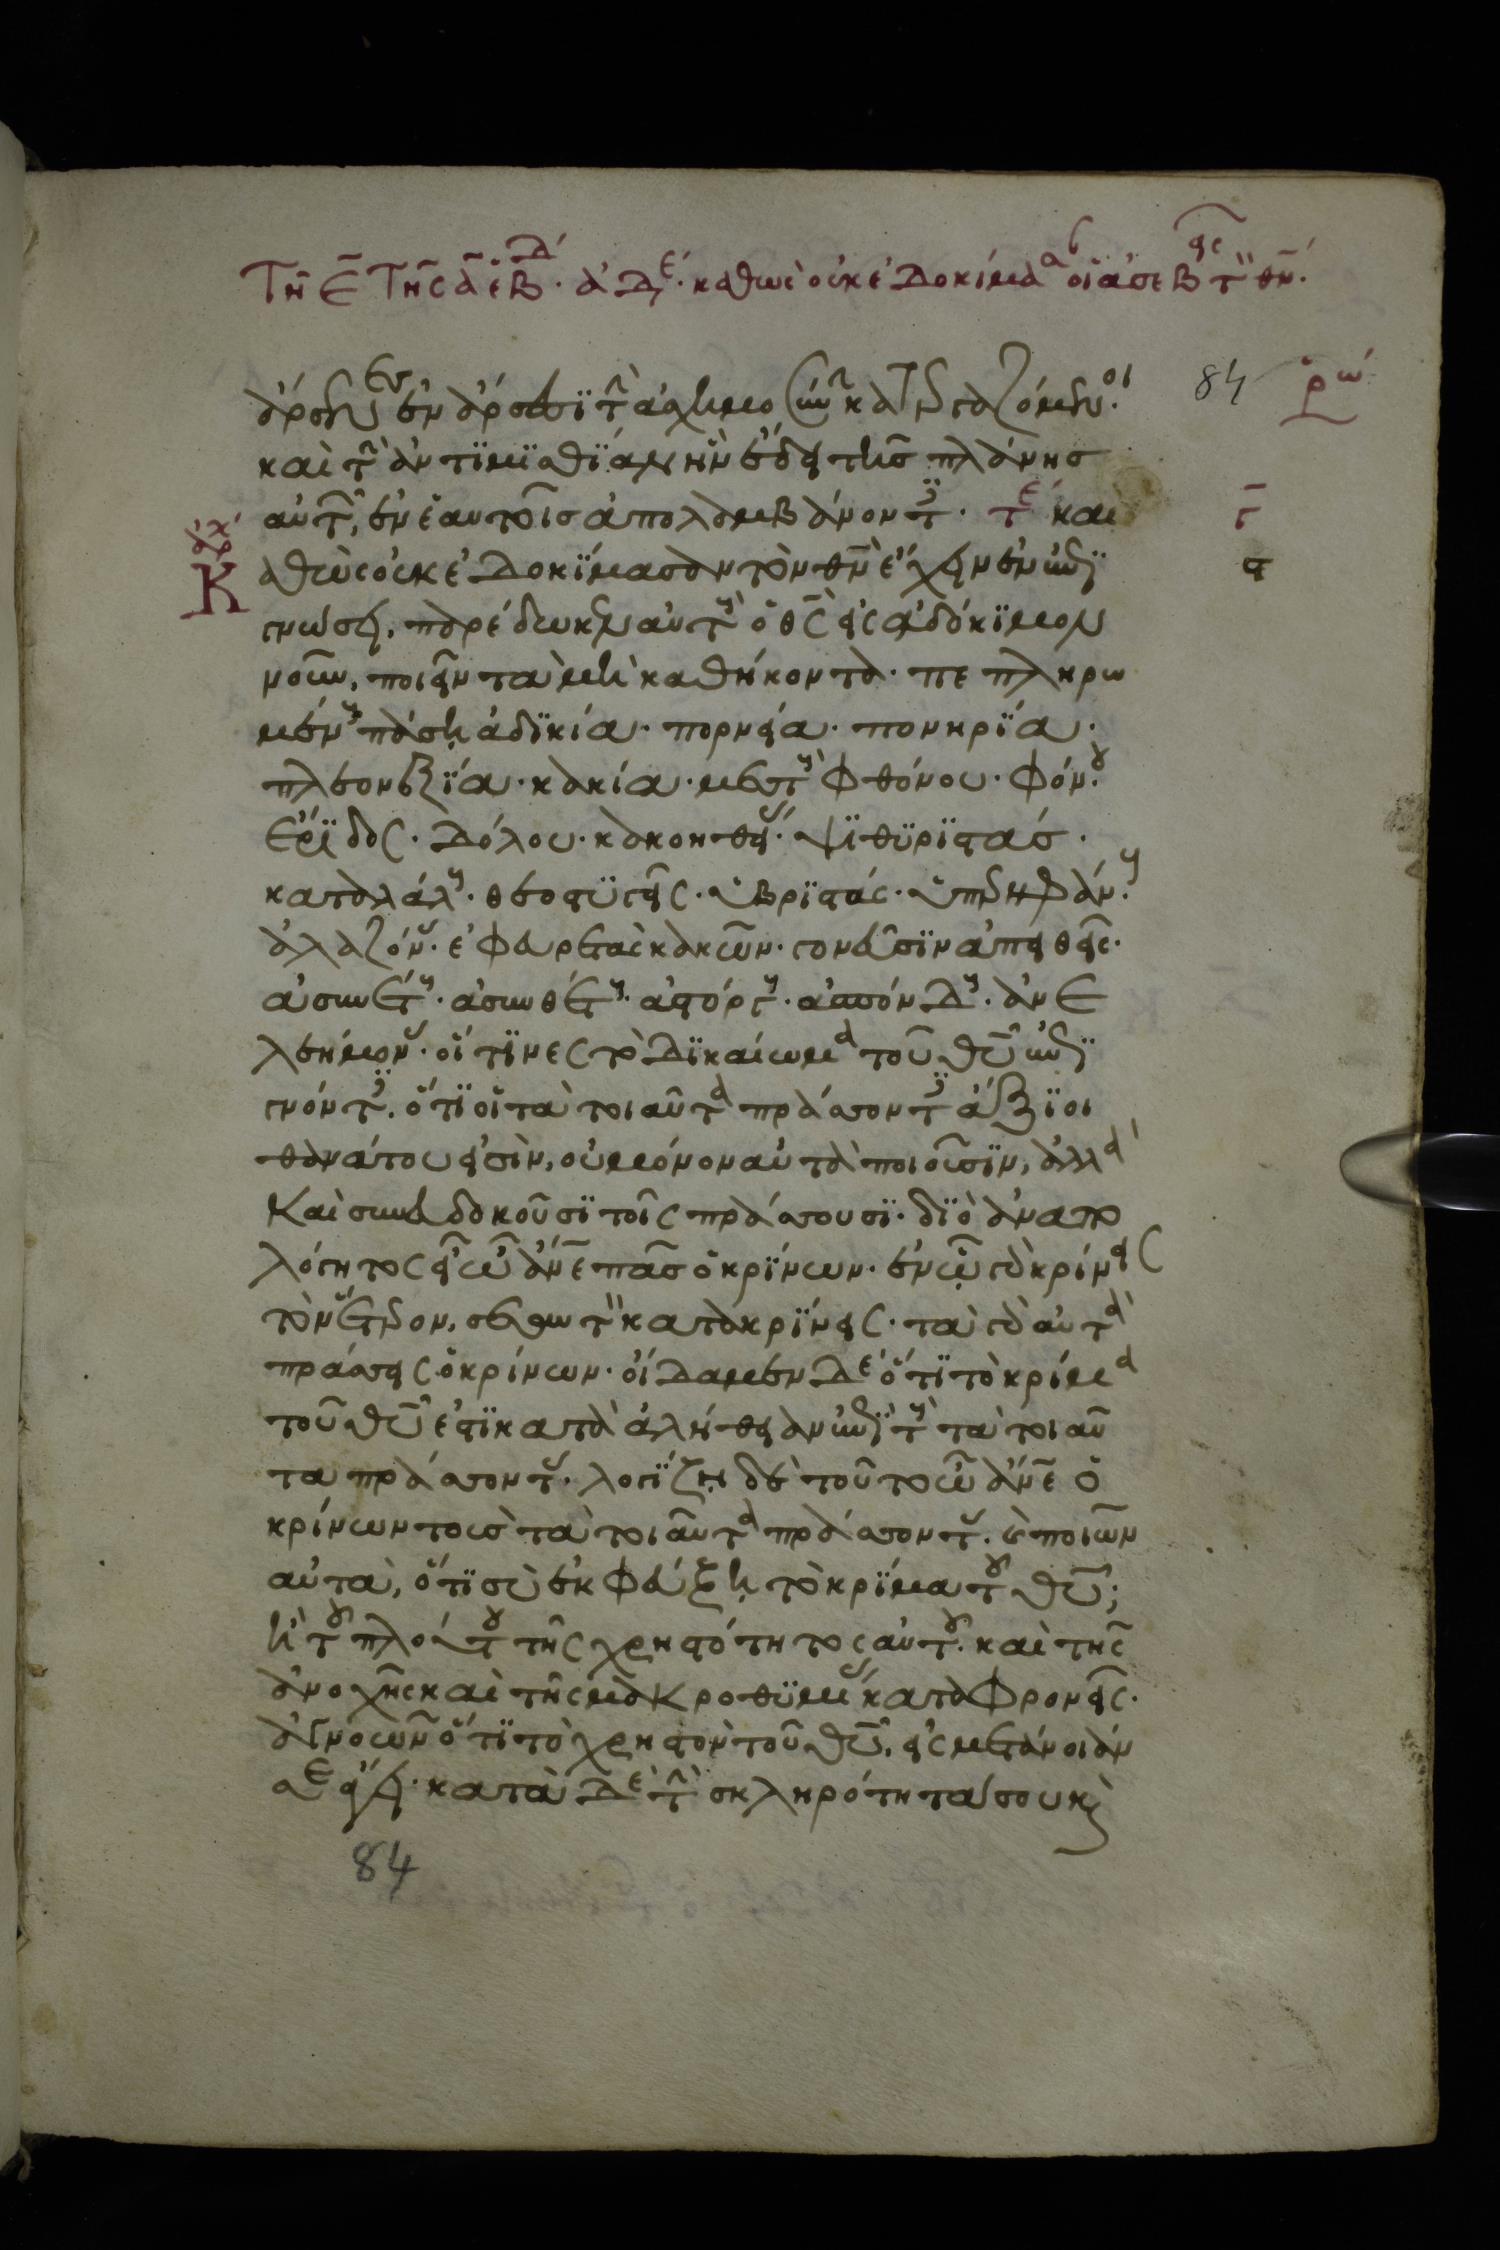 Τῆ Ε τῆς α ἑβδ. ἀδε. καθὼς οὐκ ἐδοκίμασ οἱ ἀσεβεῖς τὸν θν.
ἄρσενες ἐν ἄρσεσϊ τὴν ἀσχημοσύνην κατεργαζόμενοι.
84
ρω
καὶ τὴν ἀντϊμϊσθϊάν ἣν ἔδει τῆς πλάνης
αὐτῶν, ἐν ἑαυτοῖς ἀπολαμβάνοντες. τε και
γ
αρχ
Καθὼς οὐκ ἐδοκϊμασαν τὸν θν ἔχειν ἐν ἐπϊ
ς
γνώσει, παρέδωκεν αὐτοὺς ὁ θς εἰς ἀδόκϊμον
νοῦν, ποιεῖν τὰ μὴ καθήκοντα. πεπληρω
μένους πάσῃ ἀδϊκία. πορνεία. πονηρϊα.
πλεονεξϊα. κακία. μεστοὺς φθόνου. φόνου.
ἔρϊδος. δόλου. κακοηθείας. ψϊθϋρϊστάς.
καταλάλους. θεοστϋγεῖς. ὑβρϊστάς. ὑπερηφάνους.
ἀλαζόνας. ἐφευρετὰς κακῶν. γονεῦσϊν ἀπειθεῖς.
ἀσυνέτους. ἀσυνθέτους. ἀστόργους. ἀσπόνδους. ἀνε
λεήμονας. οἵτϊνες τὸ δϊκαίωμα τοῦ θῦ ἐπϊ
γνόντες. ὅτϊ οἱ τὰ τοιαῦτα πράσσοντες ἄξϊοι
θανάτου εἰσὶν, οὐ μόνον αὐτὰ ποιοῦσϊν, ἀλλὰ
καὶ συνευδοκοῦσϊ τοῖς πράσσουσϊ. δϊὸ ἀναπο
λόγητος εἶ ὦ ἄνε πᾶς ὁ κρϊνων. ἐν ὧ γὰρ κρίνεις
τὸν ἕτερον, σεαυτὸν κατακρϊνεις. τὰ γὰρ αὐτὰ
πράσσεις ὁ κρίνων. οἴδαμεν δὲ ὅτϊ τὸ κρίμα
τοῦ θῦ ἐστϊ κατὰ ἀλήθειαν ἐπϊ τοὺς τὰ τοιαῦ
τα πράσσοντας. λογϊζη δὲ τοῦτο ὦ ἄνε ὁ
κρίνων τοὺς τὰ τοιαῦτα πράσσοντας. καὶ ποιῶν
αὐτὰ, ὅτϊ σὺ ἐκφεύξη τὸ κρϊμα τοῦ θῦ;
ἢ τοῦ πλούτου τῆς χρηστότητος αὐτοῦ. καὶ τῆς
ἀνοχῆς καὶ τῆς μακροθϋμίας καταφρονεῖς.
ἀγνοῶν ὅτϊ τὸ χρηστὸν τοῦ θῦ, εἰς μετάνοιάν
σε ἄγει. κατὰ δὲ τὴν σκληρότητά σου καὶ
84